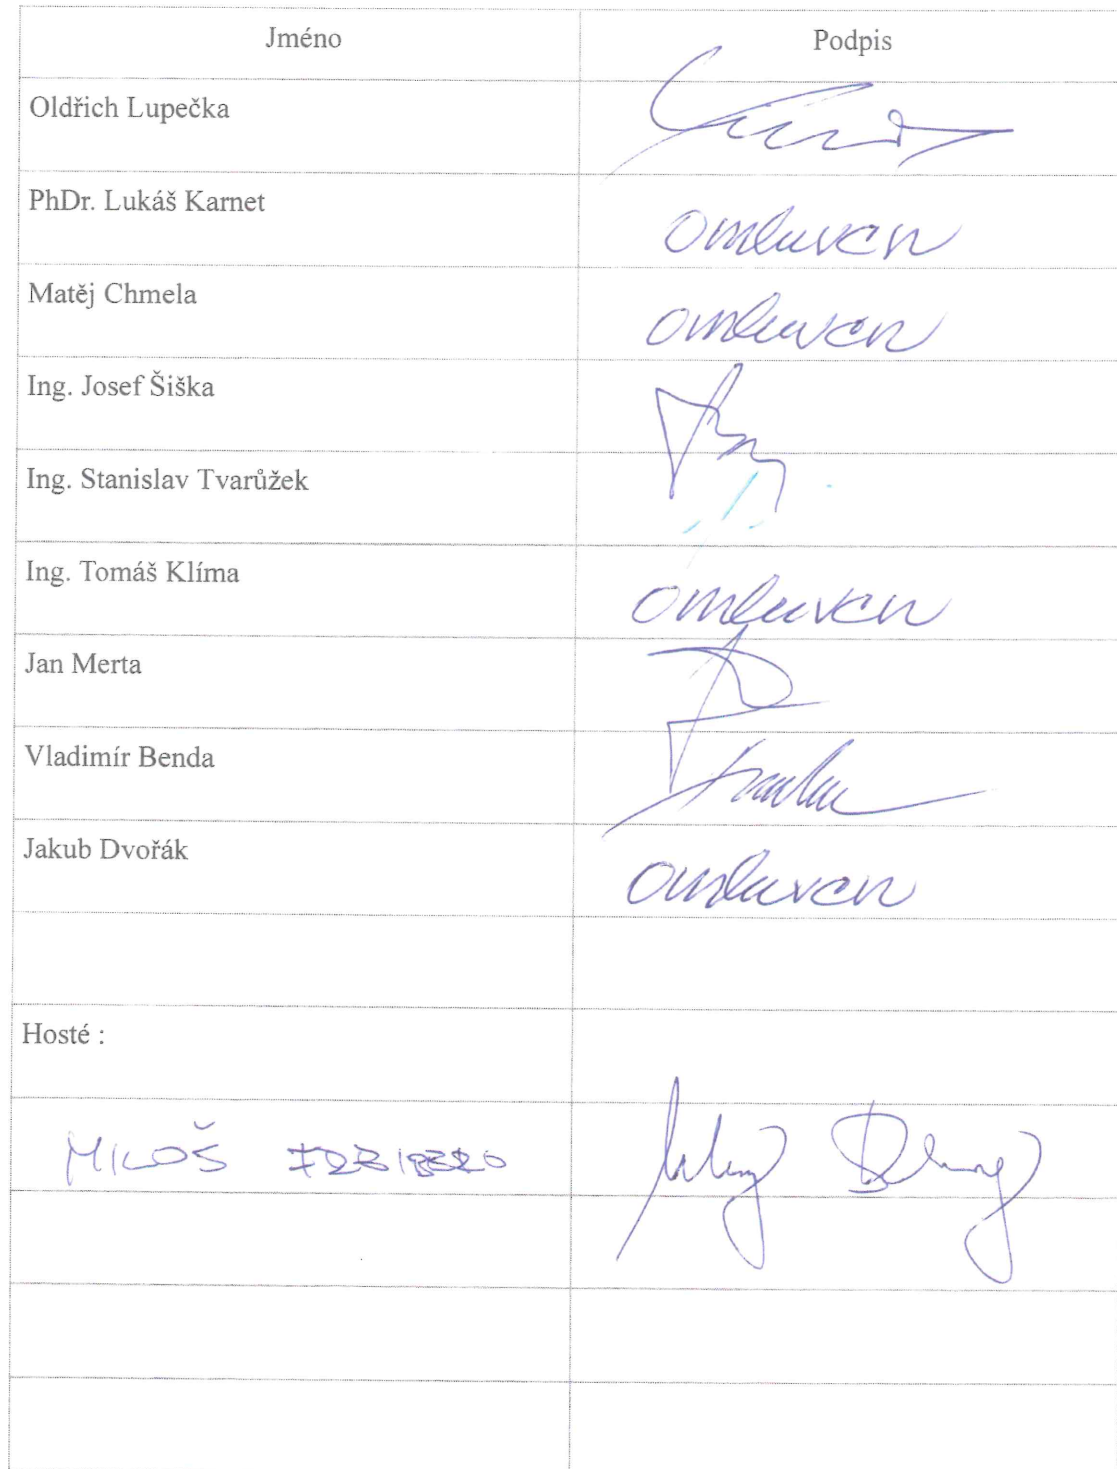 Jméno Podpis
Oldřich Lupečka
PhDr. Lukáš Karnet omluven
Matěj Chmela omluven
Ing. Josef Šiška
Ing. Stanislav Tvarůžek
Ing. Tomáš Klíma omluven
Jan Merta
Vladimír Benda
Jakub Dvořák omluven
Hosté :
MILOŠ